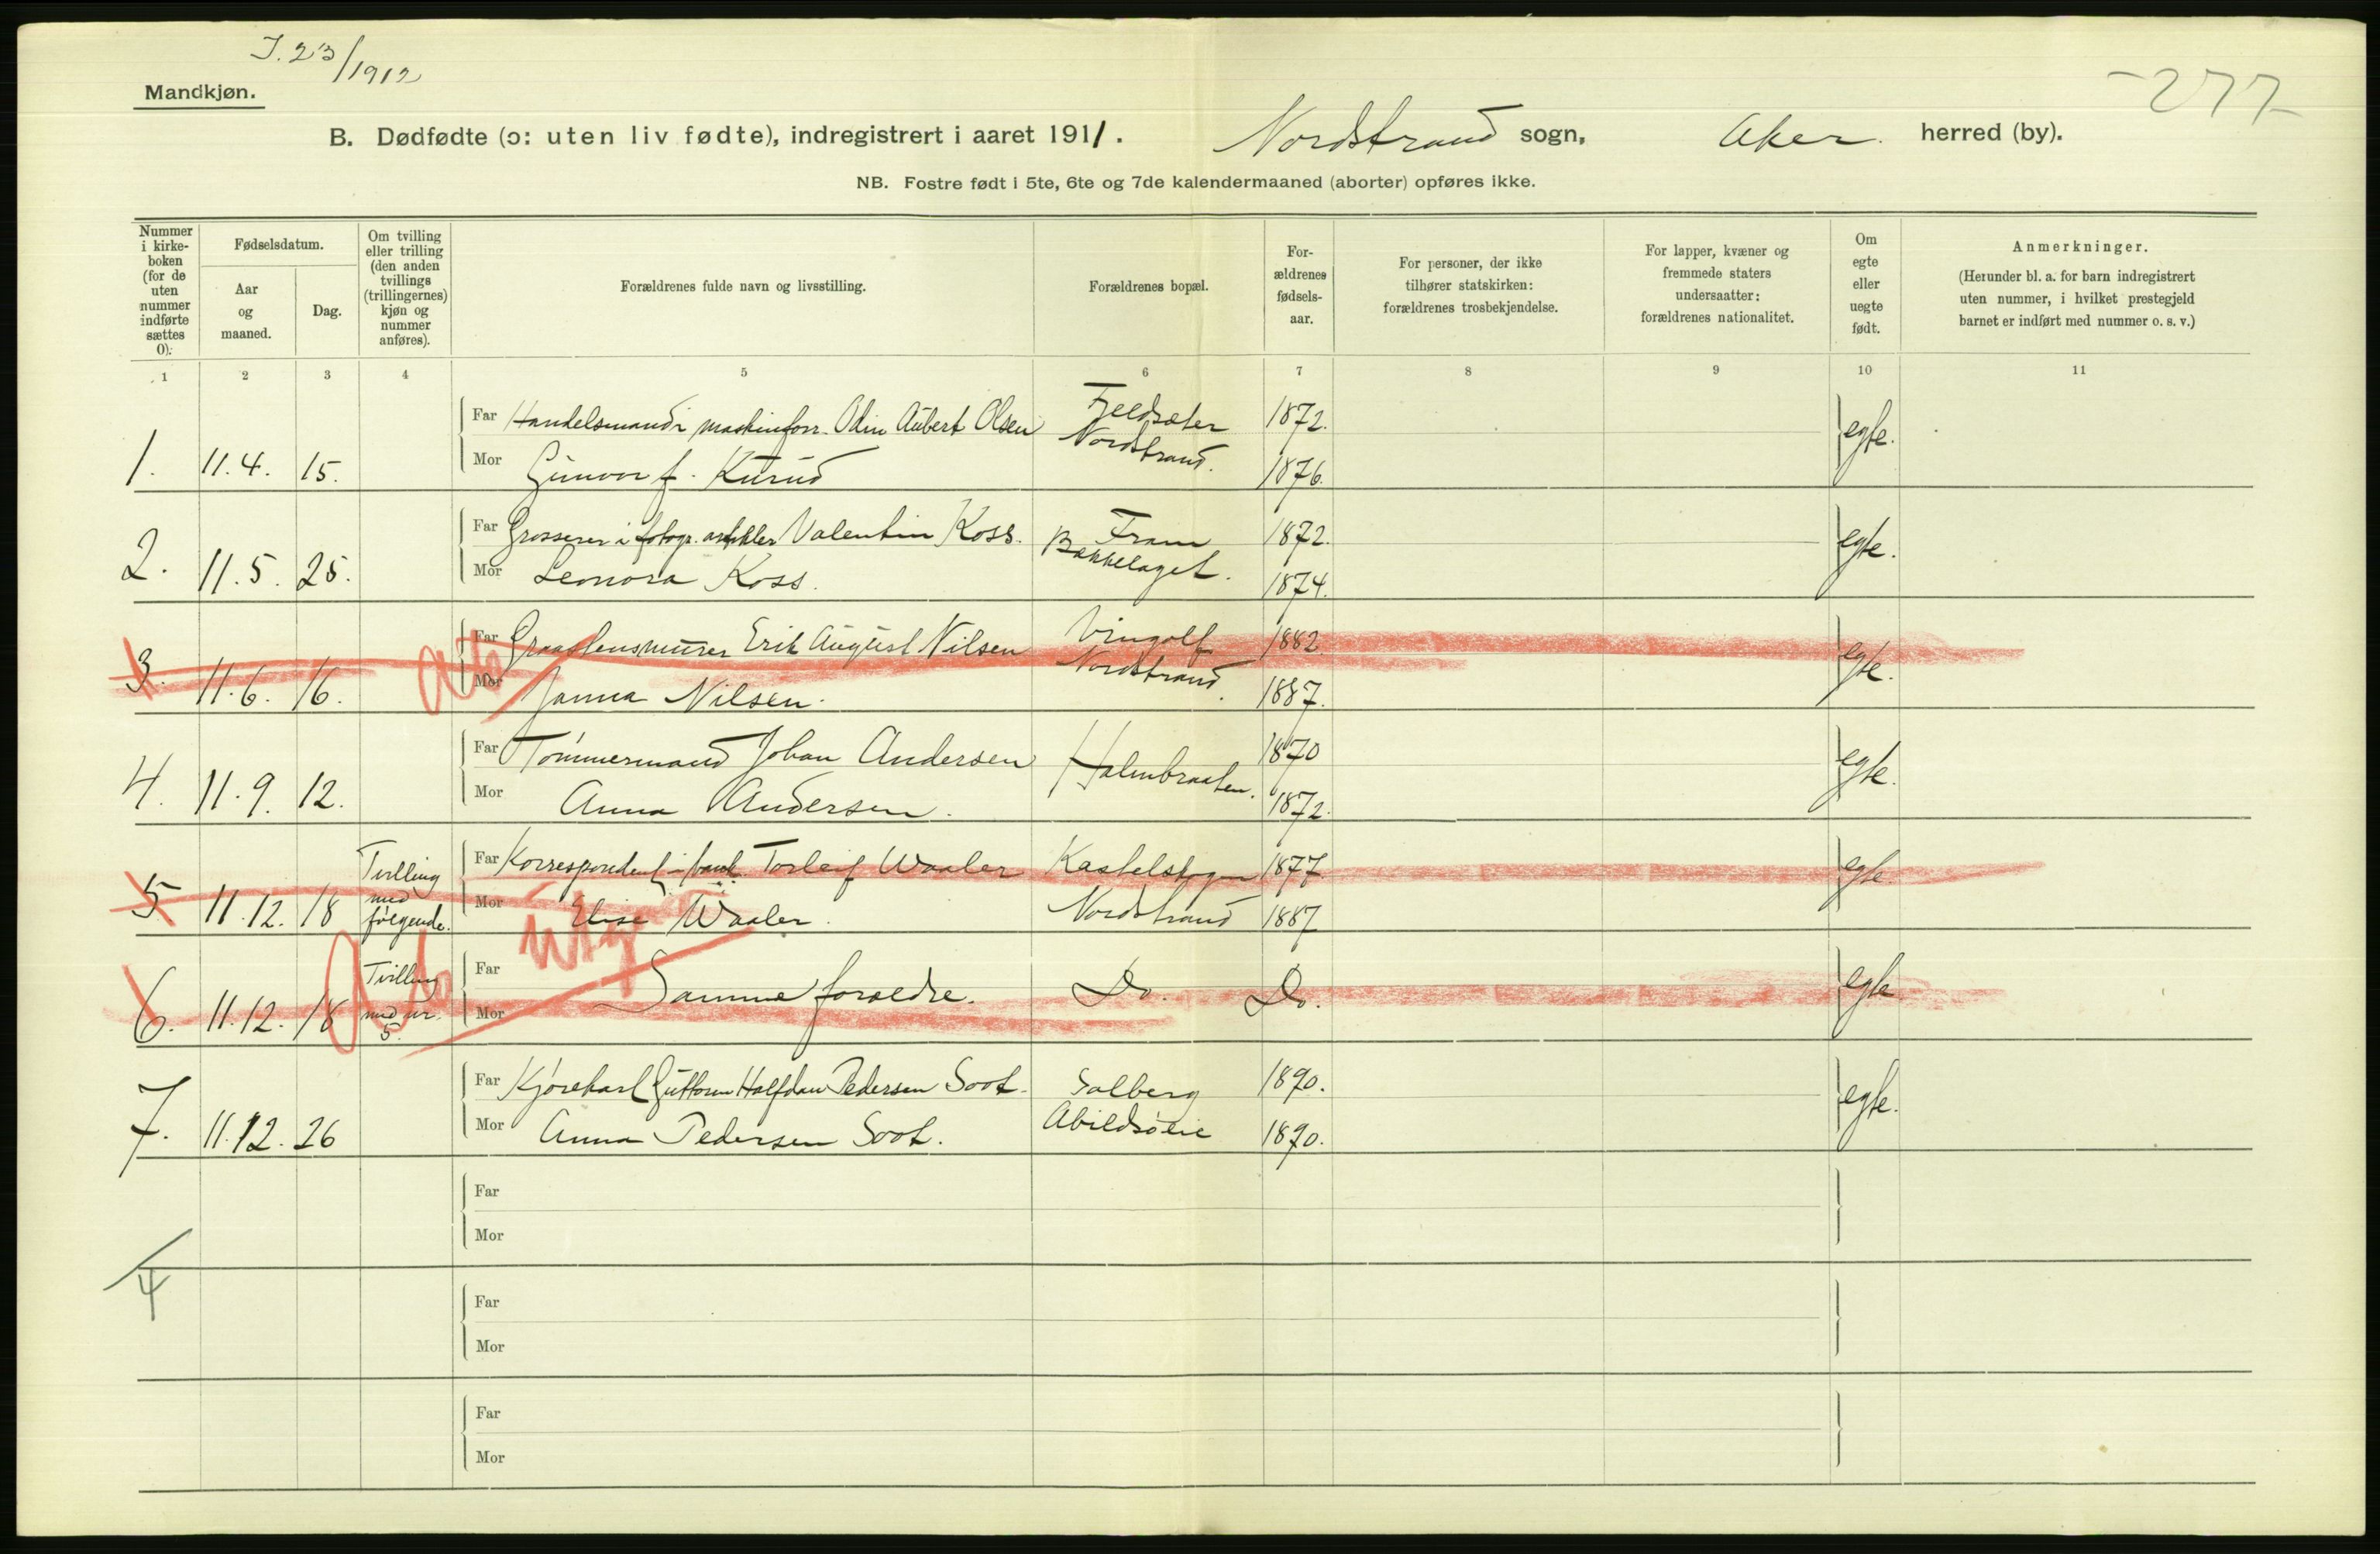 J. 23/1912
Mandkjøn.
277
B. Dødfødte (ɔ: uten liv fødte), indregistrert i aaret 1911. Nordstrand sogn, Aker. herred (by).
NB. Fostre født i 5te, 6te og 7de kalendermaaned (aborter) opføres ikke.
Nummer i kirke-boken (for de uten nummer indførte sættes 0).
Fødselsdatum.
Aar og maaned.
Dag.
Om tvilling eller trilling (den anden tvillings (trillingernes) kjøn og nummer anføres).
Forældrenes fulde navn og livsstilling.
Forældrenes bopæl.
For-ældrenes fødsels-aar.
For personer, der ikke tilhører statskirken: forældrenes trosbekjendelse.
For lapper, kvæner og fremmede staters undersaatter: forældrenes nationalitet.
Om egte eller uegte født.
Anmerkninger.
(Herunder bl. a. for barn indregistrert uten nummer, i hvilket prestegjeld barnet er indført med nummer o. s. v.)
1 2 3 4 5 6 7 8 9 10 11
Far Handelsmand i maskinforr. Odin Aubert Olsen Fjeldsæter 1872.
1. 11.4. 15. Mor Gunvor f. Kurud Nordstrand. 1876. egte.
Far Grosserer i fotogr. artikler Valentin Koss. Fram 1872.
2. 11.5. 25. Mor Leonora Koss. Bækkelaget. 1874. egte.
Far Graastensmurer Erik August Nilsen Vingolf 1882
3. 11.6. 16. Ab Mor Janna Nilsen. Nordstrand. 1887. egte.
Far Tømmermand Johan Andersen Holmbraaten. 1870
4. 11.9. 12. Mor Anna Andersen. 1872. egte.
Tvilling Far Korrespondent i bank Torleif Waaler Kastelskogen 1877
5 11.12. 18 med følgende. Mor Elise Waaler. Nordstrand 1887 egte.
Tvilling Far
6. 11.12. 18 med nr. 5. Ab Mor Samme foreldre. Do. Do. egte
Far Kjørekarl Guttorm Halfdan Pedersen Soot. Solberg 1890.
7. 11.12. 26 Mor Anna Pedersen Soot. Abildsøeie 1890. egte.
Far
Mor
4
Far
Mor
Far
Mor